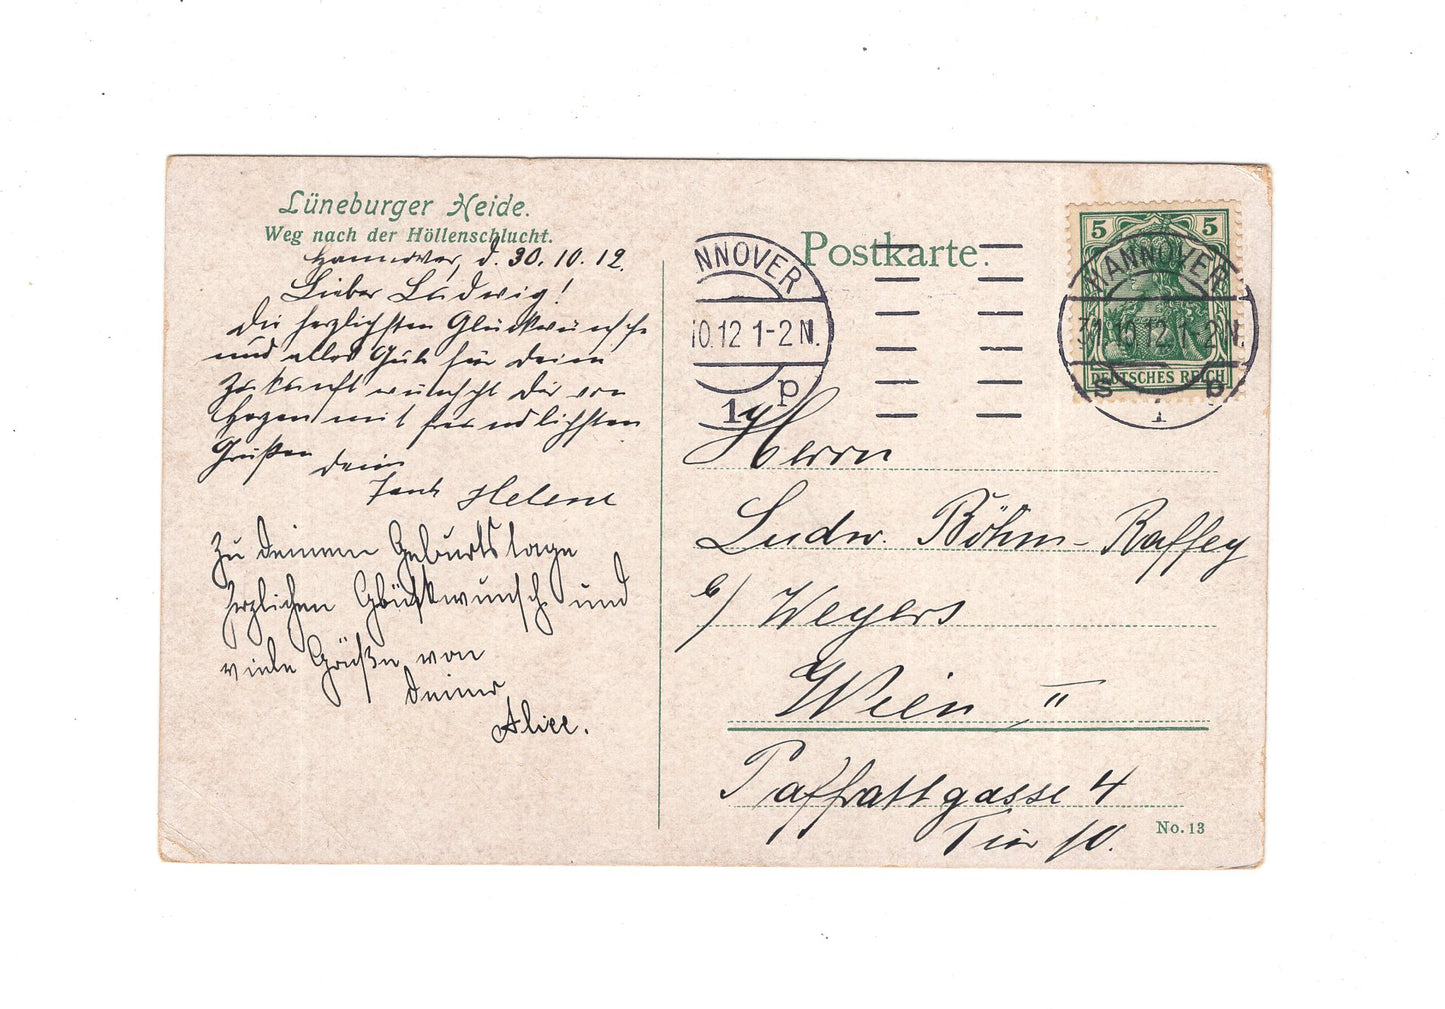 Lüneburger Heide.
Weg nach der Höllenschlucht.
Hannover, d. 30.10.12.
Lieber Ludwig!
Die herzlichsten Glückwünsche
und alles Gute für deine
Zukunft wünscht Dir von
Herzen mit freundlichsten
Grüßen deine
Tante Helene
Zu deinem Geburtstage
herzlichen Glückwunsch und
viele Grüße von
deiner
Alice.
Postkarte.
NNOVER
10.12 1-2 N.
1 p
5 5
DEUTSCHES REICH
HANNOVER
31.10.12.1-2N.
S p
1
Herrn
Ludw. Böhm-Raffey
b/ Weyers
Wien II
Paffrattgasse 4
Tür 10.
No. 13